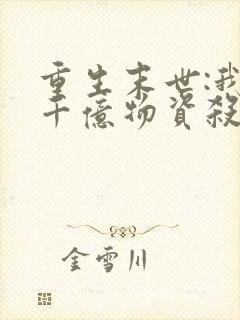 重生末世:我
千億物資殺
金雪川